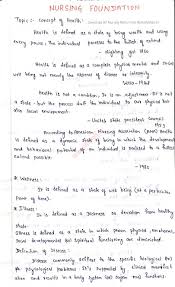 NURSING FOUNDATION
Topic :- Concept of Health :-
Health is defined as a state of being well and using
every power the individual possess to the fullest extend
- nightingale 1860
Health is defined as a complete physical, mental and social
well being not merely the absence of disease or infirmity.
WHO - 1948
Health is not a condition, it is an adjustment it's not
a state - but the process the individual to our physical but
also social environment.
- United state president's
According to American Nursing Association (ANA) health
is defined as a dynamic state of being in which the development
and behavioral potential of an individual is realized to a fullest
extend possible.
- 1980
* Wellness :-
It is defined as a state of well being (at a particular
point of time).
* Illness :-
It is defined as a deviation from healthy
state.
Illness is defined as a state in which person physical, emotional,
social, developmental but spiritual functioning are diminished.
Definition of Disease :-
Disease commonly refers to the specific biological but
physiological problems. It's supported by clinical manifest-